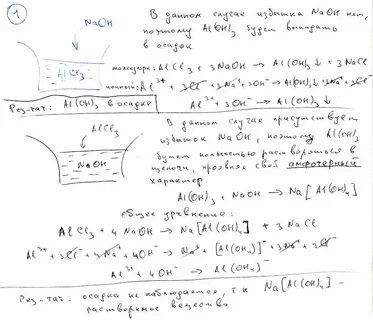 1
NaOH
AlCl₃
В данном случае избытка NaOH нет,
поэтому Al(OH)₃ будет выпадать
в осадок
молекуляр: AlCl₃ + 3NaOH → Al(OH)₃↓ + 3NaCl
ионный: Al³⁺ + 3Cl⁻ + 3Na⁺ + 3OH⁻ → Al(OH)₃↓ + 3Na⁺ + 3Cl⁻
Al³⁺ + 3OH⁻ → Al(OH)₃↓
Рез-тат: Al(OH)₃ в осадке
AlCl₃
NaOH
В данном случае присутствует
избыток NaOH, поэтому Al(OH)₃
будет полностью растворяться в
щелочи, проявляя свой амфотерный
характер.
Al(OH)₃ + NaOH → Na[Al(OH)₄]
общее уравнение:
AlCl₃ + 4NaOH → Na[Al(OH)₄] + 3NaCl
Al³⁺ + 3Cl⁻ + 4Na⁺ + 4OH⁻ → Na⁺ + [Al(OH)₄]⁻ + 3Na⁺ + 3Cl⁻
Al³⁺ + 4OH⁻ → Al(OH)₄⁻
Рез-тат: осадка не наблюдается, т.к Na[Al(OH)₄] -
растворимое вещество